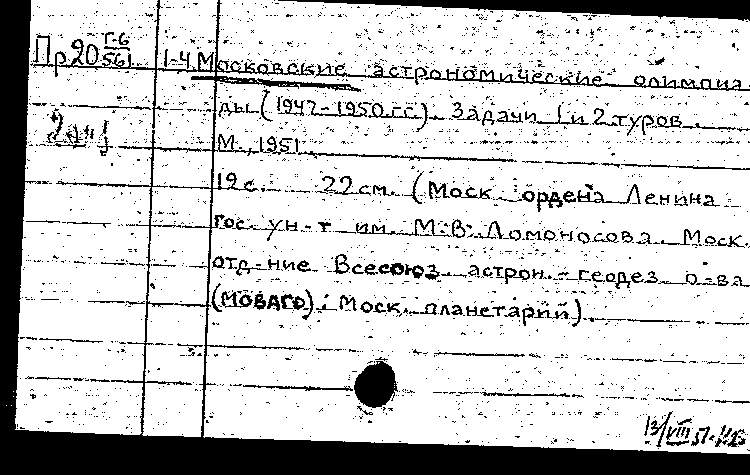 Пр20 Г-6/561. 1-4 Московские астрономические олимпиа-
ды (1947-1950.гг.). Задачи 1 и 2 туров.
2 экз
М., 1951.
19 с. 22 см. (Моск. ордена Ленина
гос. ун-т им. М.В. Ломоносова. Моск.
отд-ние Всесоюз. астрон.-геодез. о-ва
(МОВАГО). Моск. планетарий).
13/VIII 51